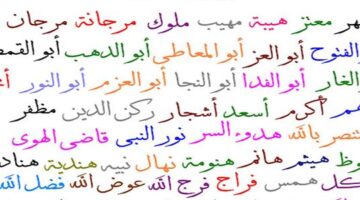 معتز هيبة مهيب ملوك مرجانة مرجان
أبو العز أبو المعاطي أبو الدهب
الغار أبو الفدا أبو النجا أبو العزم أبو النور
أكرم أسعد أشجار ركن الدين مظفر
بالله هدوء السر نور النبي قاضي الهوى
هيثم هانم هنومة نهال نبيه هندية
همس فراج فرج الله عوض الله فضل الله